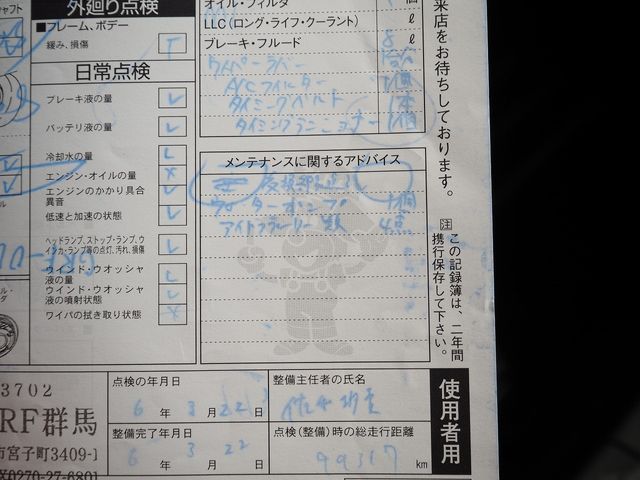 シャフト
外廻り点検
■フレーム、ボデー
緩み、損傷
T
日常点検
ブレーキ液の量
バッテリ液の量
冷却水の量
エンジン・オイルの量
エンジンのかかり具合
異音
低速と加速の状態
ヘッドランプ、ストップ・ランプ、ウ
インカ・ランプ等の点灯、汚れ、損傷
ウインド・ウオッシャ
液の量
ウインド・ウオッシャ
液の噴射状態
ワイパの拭き取り状態
オイル・フィルタ 個
LLC(ロング・ライフ・クーラント) ℓ
ブレーキ・フルード ℓ
ワイパーラバー
A/Cフィルター 1個
タイミングベルト 1本
1個
メンテナンスに関するアドバイス
ウォーターポンプ 1個
4点
来店をお待ちしております。
注
この記録簿は、二年間
携行保存して下さい。
3702
RF群馬
市宮子町3409-1
0270-27-6801
点検の年月日
6年3月22日
整備完了年月日
6年3月22日
整備主任者の氏名
点検(整備)時の総走行距離
99317 km
使用者用